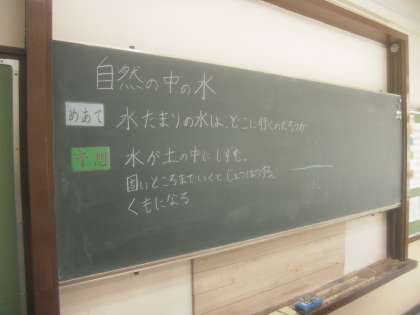 自然の中の水
めあて 水たまりの水は、どこに行くのだろうか
予想 水が土の中にしずむ。
固いところまでいくとじょうはつする。
くもになる